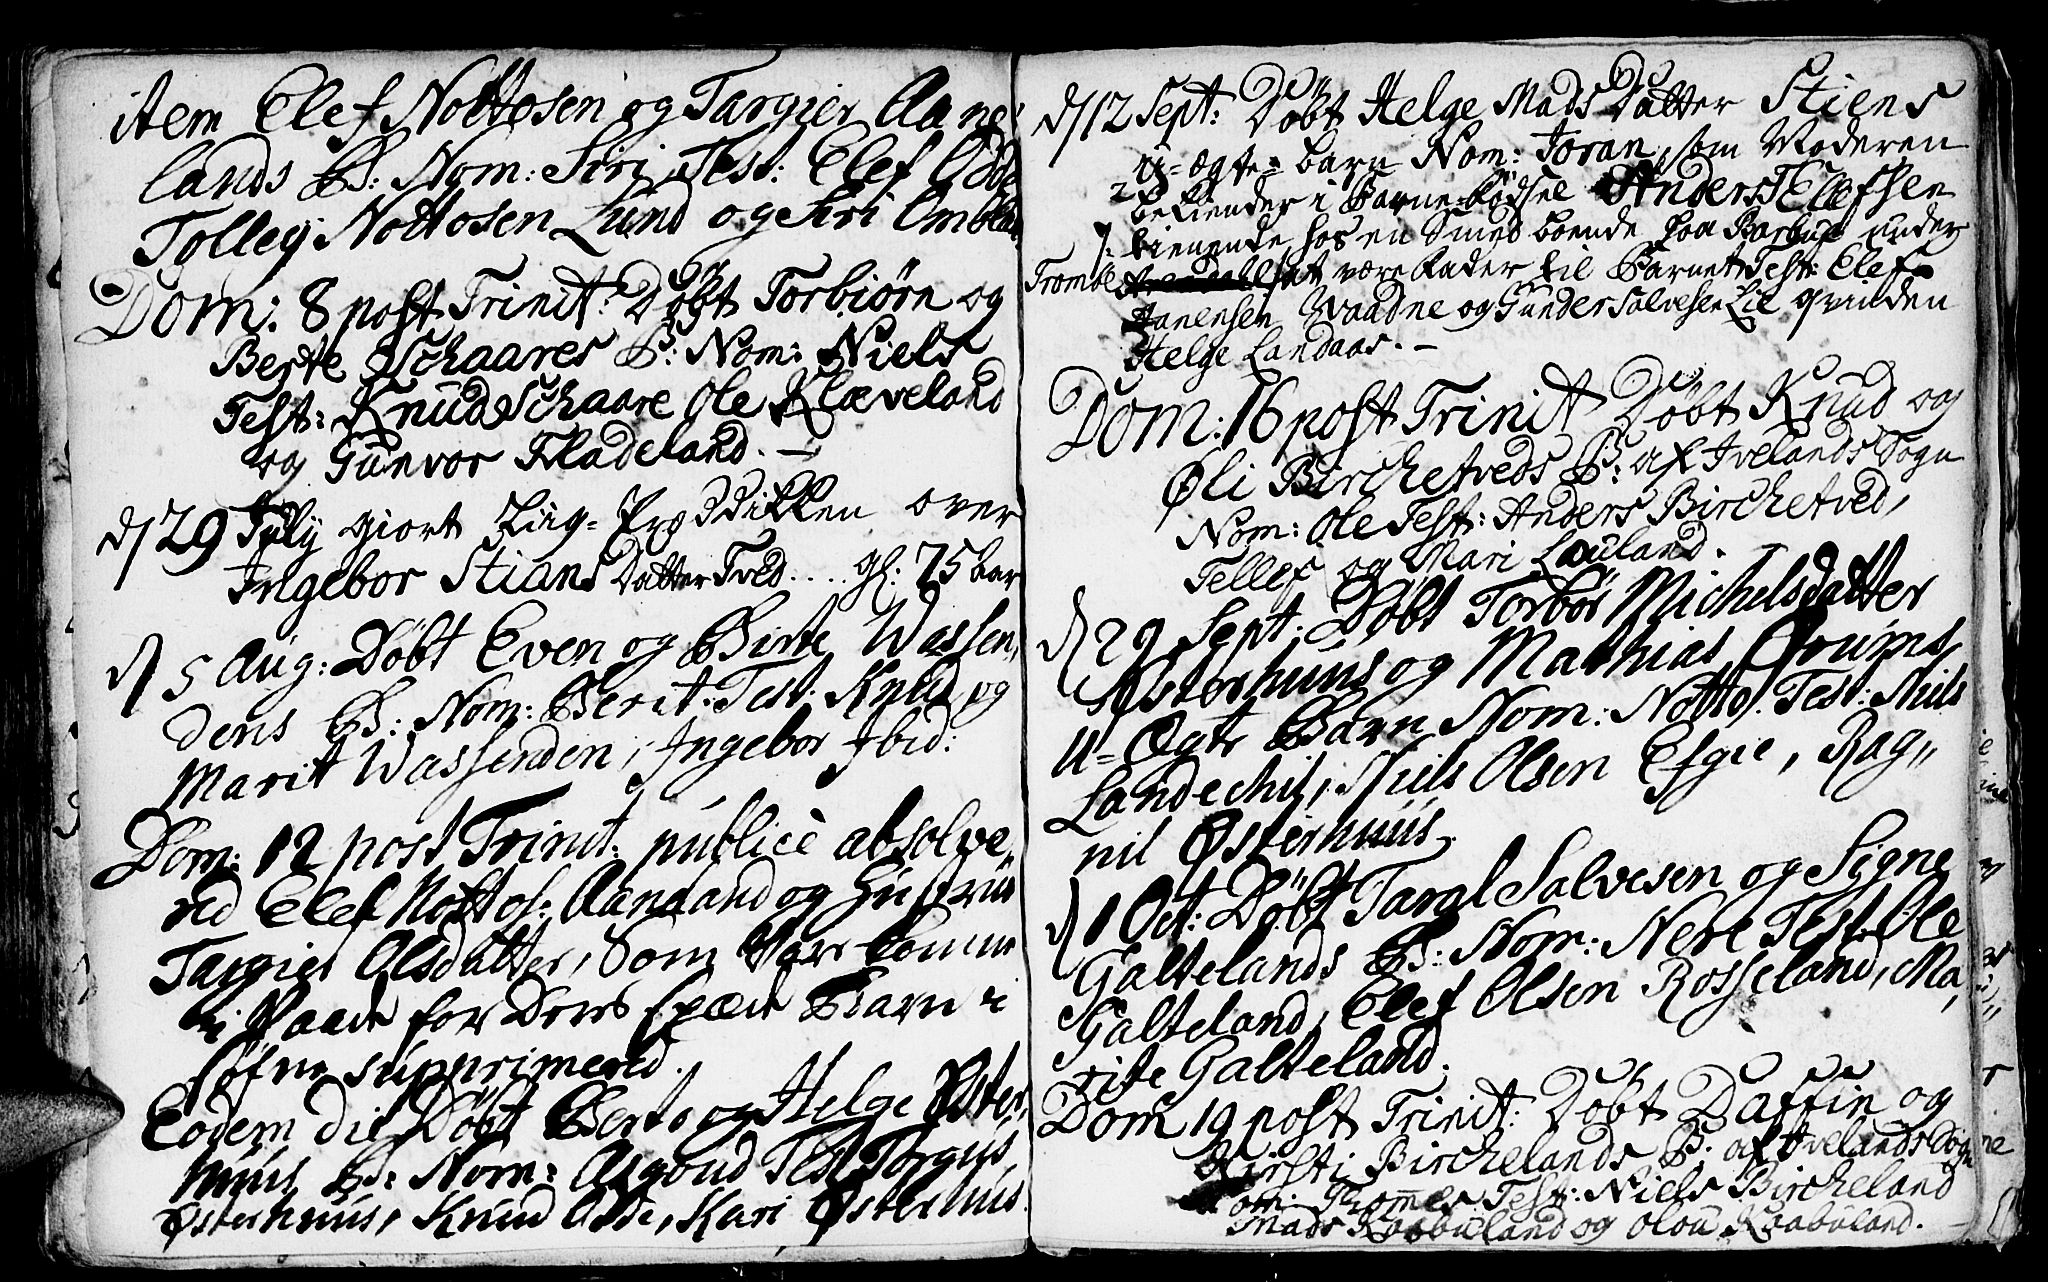 item Elef Nottosen og Targier Aane,
lands B: Nom: Siri, Test: Elef Odde
Tollef Nottosen Lund og Siri Omland
Dom: 8 post Trinit: Døbt Torbiørn og
Berte Schaares B: Nom: Niels
Test: Knud Schaare Ole Klæveland
og Gunvor Fladeland. —
d/29 July giort Liig-Prædikken over
Ingebor Stians Datter Tved.... gl: 75 aar
d/ 5 Aug: Døbt Even og Birte Wassen,
dens B: Nom: Berit. Test: Knud og
Marit Wassenden, Ingebor Ibid:
Dom: 12 post Trinit: publicè absolve,,
red Elef Nottos: Aanland og Hustrue
Targier Olsdatter, som var komne
i Vaade for Deris spæde Barn i
søfne supprimered.
Eodem die Døbt Berte og Helge Øster,
huus B: Nom: Asgoud Test Torgus
Østerhuus, Knud Odde, Kari Østerhuus.
d/12 Sept: Døbt Helge Mads Datter Stiens
u-ægte-barn Nom: Joran, som Moderen
bekiender i Barne-fødsel Anders Ellefsen
tienende hos en Smed boende paa Barbue under
Tromøe Arendall at være fader til Barnet Test: Elef
Aanensen Vaadne og Gunder Salvesen Lie qvinden
Helge Landaas. —
Dom: 16 post Trinit Døbt Knud og
Øli Birchetveds B: af Ivelands Sogn
Nom: Ole Test: Anders Birchetved,
Tellef og Mari Lauland.
d/29 Sept: Døbt Torbør Michelsdatter
Østerhuus og Mathias Orums
U-Ægte Barn Nom: Notto. Test: Niels
Landechil, Niels Olsen Efgie, Rag,,
nil Østerhuus.
d/1 Oct: Døbt Targl Salvesen og Signe
Galtelands B: Nom: Nere Test: Ole
Galteland, Elef Olsen Rosseland, Ma,
rite Galteland.
Dom 19 post Trinit: Døbt Daffin og
Kirsti Birchelands B: af Ivelands Sogn
Nom: Thomes Test: Niels Bircheland
Mads Kaabuland og Olou Kaabuland. —